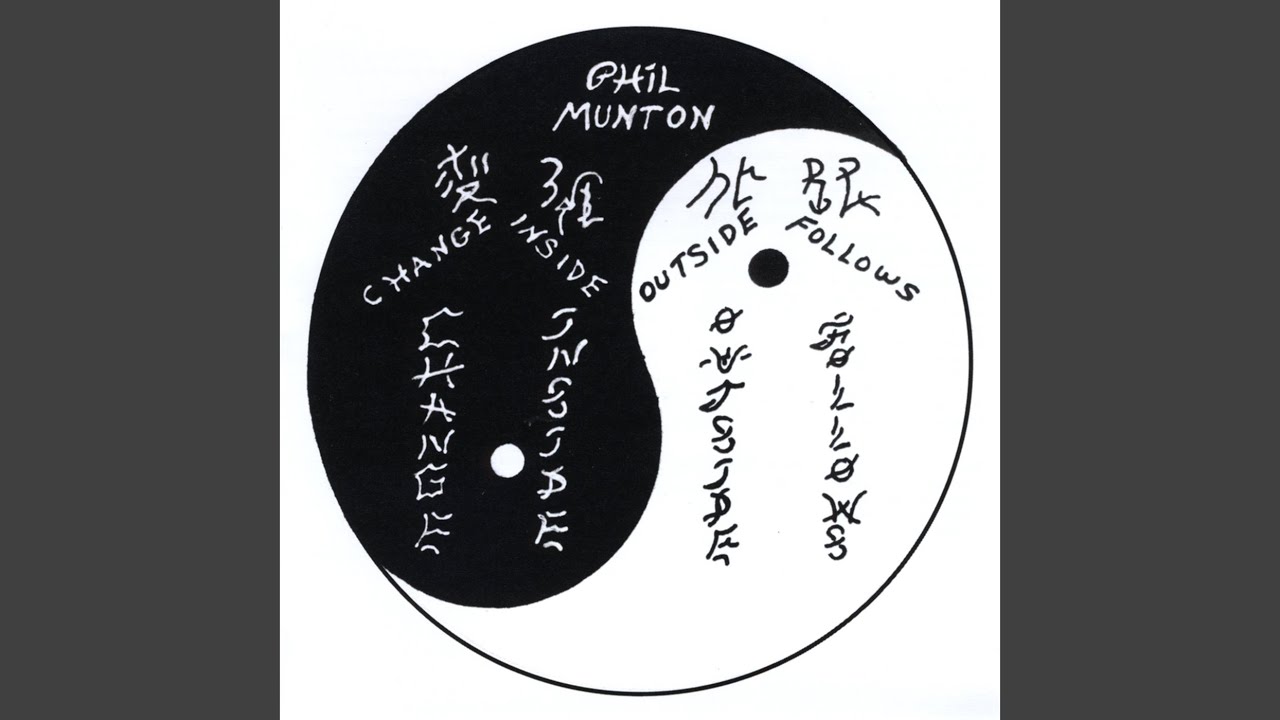 PHIL
MUNTON
CHANGE
INSIDE
OUTSIDE
FOLLOWS
CHANGE
INSIDE
OUTSIDE
FOLLOWS